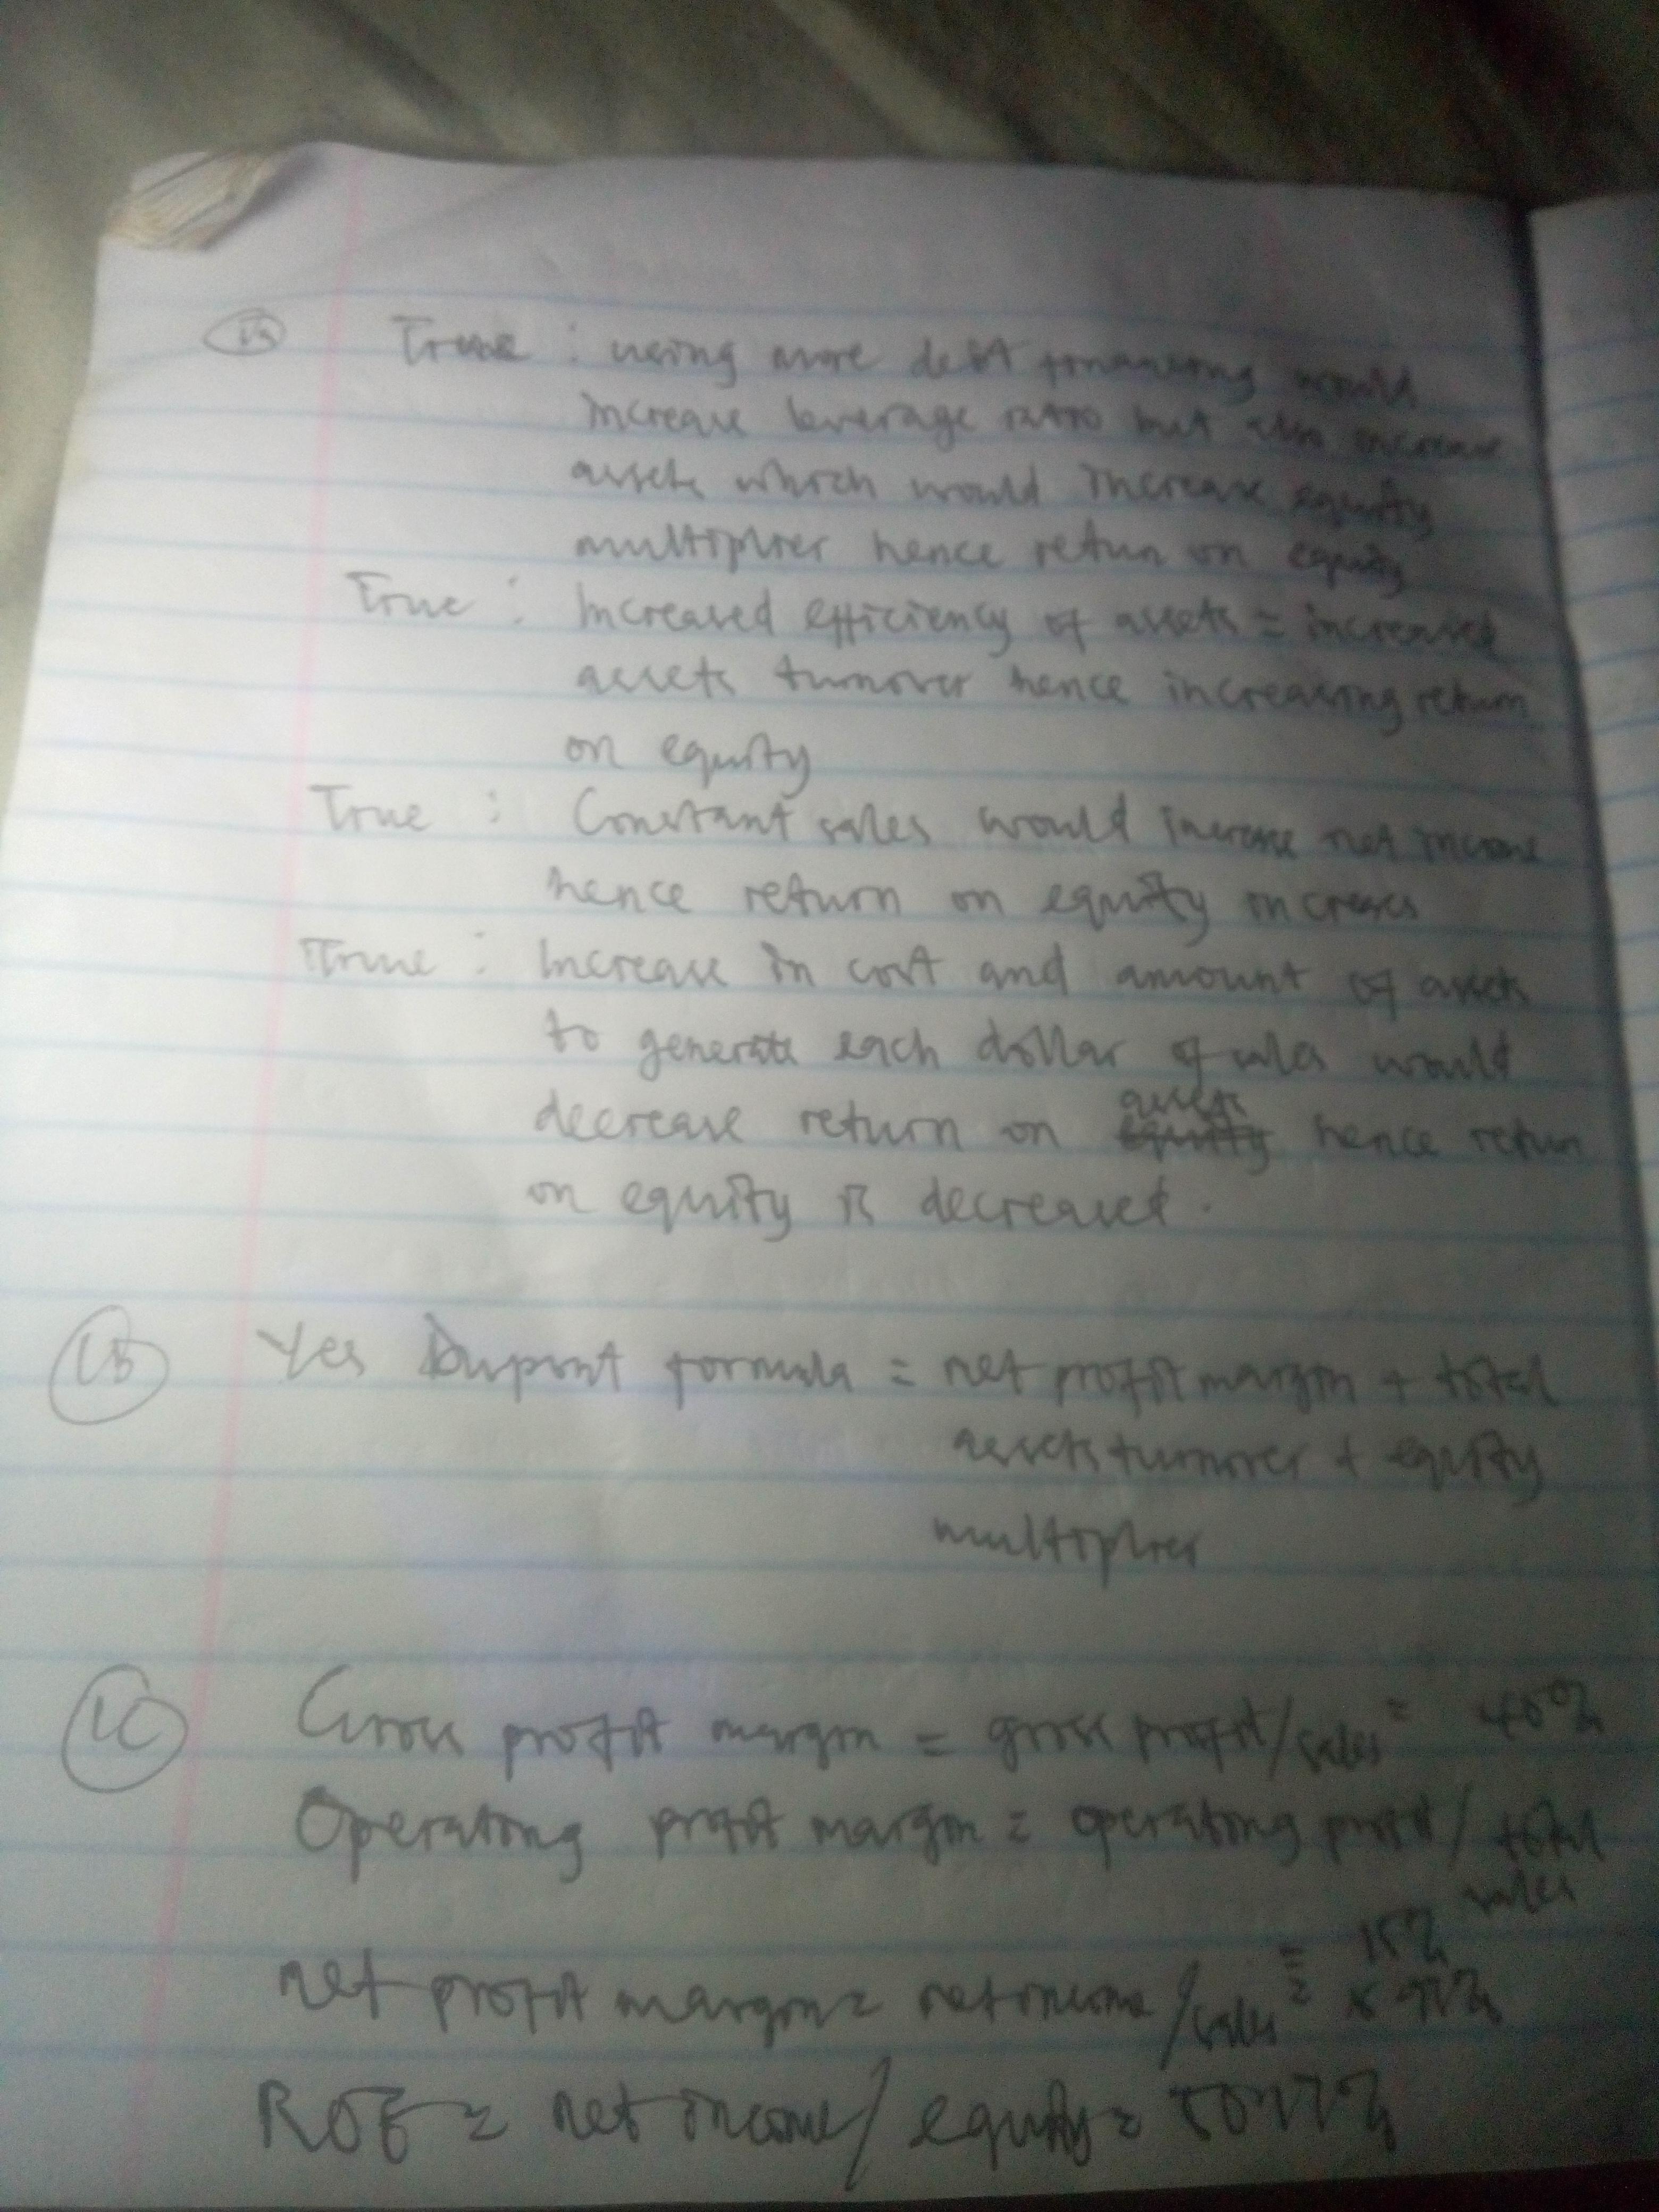 1a True : using more debt financing would
increase leverage ratio but also increase
assets which would increase equity
multiplier hence return on equity
True : Increased efficiency of assets = increased
assets turnover hence increasing return
on equity
True : Constant sales would increase net income
hence return on equity increases
True : Increase in cost and amount of assets
to generate each dollar of sales would
decrease return on assets hence return
on equity is decreased.
1B Yes Dupont formula = net profit margin + total
assets turnover + equity
multiplier
1C Gross profit margin = gross profit/sales = 40%
Operating profit margin = operating profit/ total
sales
= 15%
net profit margin = net income/sales =
ROE = net income/ equity =